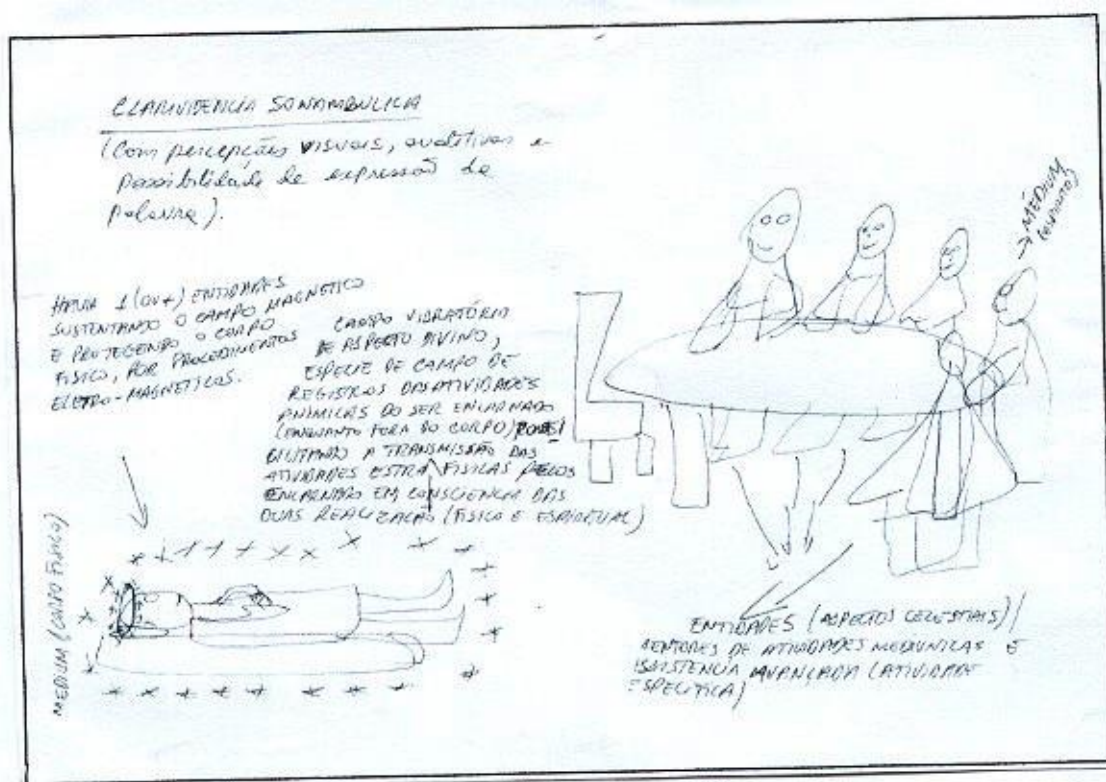 CLARIVIDENCIA SONAMBULICA
(Com percepções visuais, auditivas e
possibilidade de expressão da
palavra).
→ MÉDIUM
(ESPIRITO)
HAVIA 1 (OU +) ENTIDADES
SUSTENTANDO O CAMPO MAGNETICO
E PROTEGENDO O CORPO
FISICO, POR PROCEDIMENTOS
ELETRO-MAGNÉTICOS.
CAMPO VIBRATÓRIO
DE ASPECTO DIVINO,
ESPECIE DE CAMPO DE
REGISTROS DAS ATIVIDADES
ANIMICAS DO SER ENCARNADO
(ENQUANTO FORA DO CORPO) POSSI
BILITANDO A TRANSMISSÃO DAS
ATIVIDADES EXTRA FISICAS PELOS
ENCARNADO EM CONSCIENCIA DAS
DUAS REALIZAÇÃO (FISICO E ESPIRITUAL)
MEDIUM (CORPO FISICO)
ENTIDADES (ASPECTOS CELESTIAIS) /
MENTORES DE ATIVIDADES MEDIUNICAS E
ASSISTENCIA AVANÇADA (ATIVIDADE
ESPECIFICA)